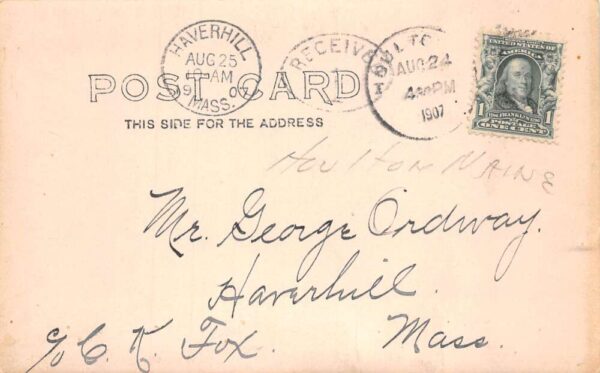 HAVERHILL
AUG 25
AM
9 07
MASS.
RECEIVED
HOULTO
AUG 24
4 PM
1907
UNITED STATES OF AMERICA
POST CARD
THIS SIDE FOR THE ADDRESS
1 FRANKLIN 1
POSTAGE
ONE CENT
HOULTON MAINE
Mr. George Ordway.
Haverhill.
c/o C. K. Fox. Mass.